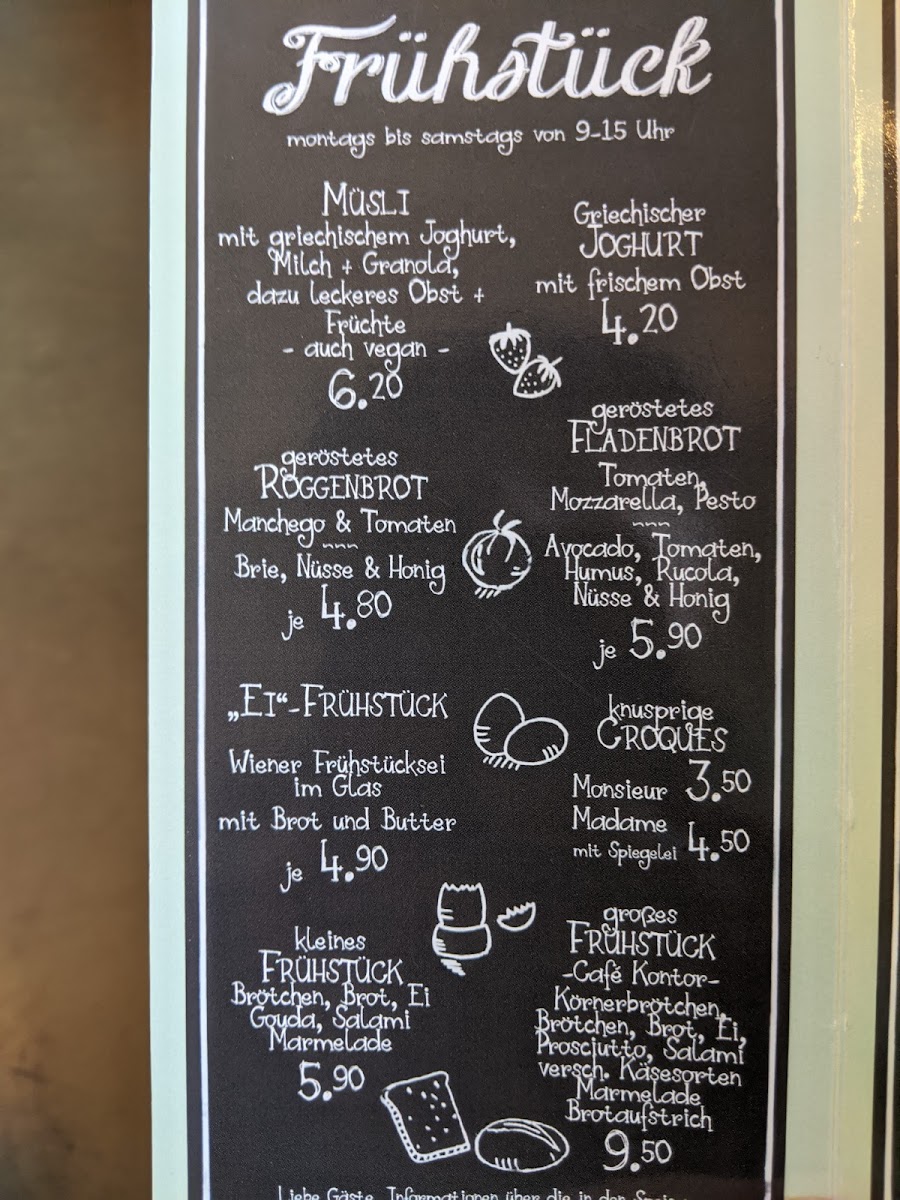 Frühstück
montags bis samstags von 9-15 Uhr
MÜSLI
mit griechischem Joghurt,
Milch + Granola,
dazu leckeres Obst +
Früchte
- auch vegan -
6.20
Griechischer
JOGHURT
mit frischem Obst
4.20
geröstetes
ROGGENBROT
Manchego & Tomaten
~~~
Brie, Nüsse & Honig
je 4.80
geröstetes
FLADENBROT
Tomaten,
Mozzarella, Pesto
~~~
Avocado, Tomaten,
Humus, Rucola,
Nüsse & Honig
je 5.90
„EI“-FRÜHSTÜCK
Wiener Frühstücksei
im Glas
mit Brot und Butter
je 4.90
knusprige
CROQUES
Monsieur 3.50
Madame
mit Spiegelei 4.50
kleines
FRÜHSTÜCK
Brötchen, Brot, Ei
Gouda, Salami
Marmelade
5.90
großes
FRÜHSTÜCK
-Café Kontor-
Körnerbrötchen,
Brötchen, Brot, Ei,
Prosciutto, Salami
versch. Käsesorten
Marmelade
Brotaufstrich
9.50
Liebe Gäste, Informationen über die in den